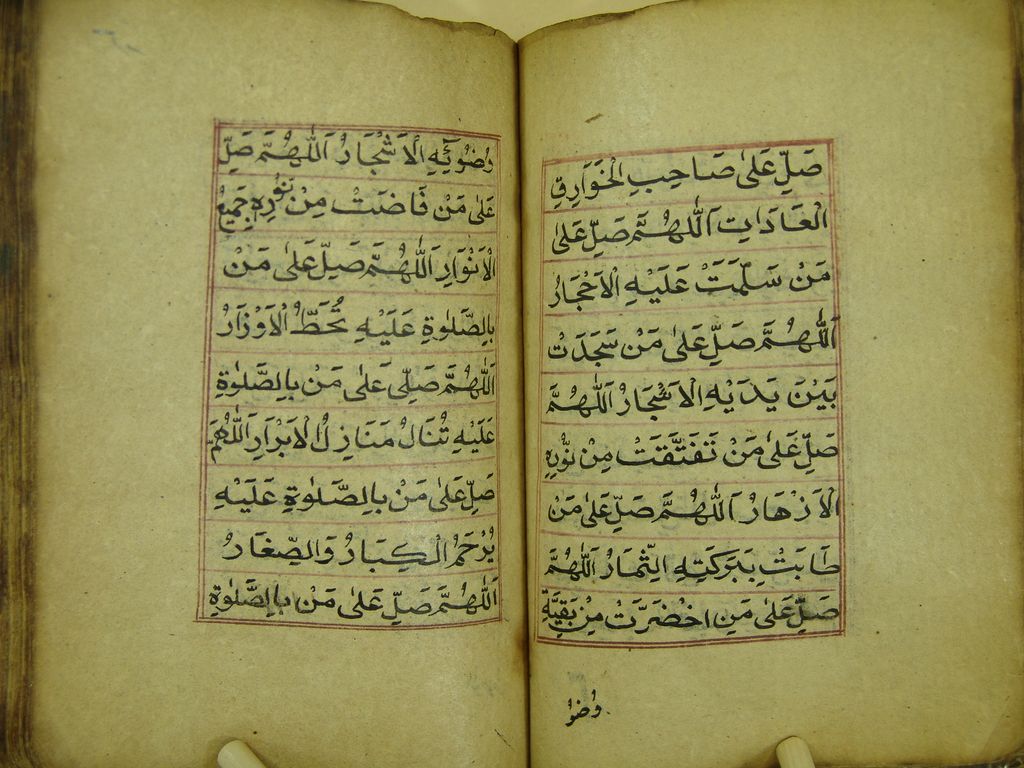 صَلِّ عَلىٰ صَاحِبِ الْخَوَارِقِ
الْعَادَاتِ اَللّٰهُمَّ صَلِّ عَلىٰ
مَنْ سَلَّمَتْ عَلَيْهِ الْاَحْجَارُ
اَللّٰهُمَّ صَلِّ عَلىٰ مَنْ سَجَدَتْ
بَيْنَ يَدَيْهِ الْاَشْجَارُ اَللّٰهُمَّ
صَلِّ عَلىٰ مَنْ تَفَتَّقَتْ مِنْ نُّوْرِهِ
الْاَزْهَارُ اَللّٰهُمَّ صَلِّ عَلىٰ مَنْ
طَابَتْ بِبَرَكَتِهِ الثِّمَارُ اَللّٰهُمَّ
صَلِّ عَلىٰ مَنِ اخْضَرَّتْ مِنْ بَقِيَّةِ
وُضُوْ
وُضُوْئِهِ الْاَشْجَارُ اَللّٰهُمَّ صَلِّ
عَلىٰ مَنْ فَاضَتْ مِنْ نُّوْرِهِ جَمِيْعُ
الْاَنْوَارِ اَللّٰهُمَّ صَلِّ عَلىٰ مَنْ
بِالصَّلٰوةِ عَلَيْهِ تُحَطُّ الْاَوْزَارُ
اَللّٰهُمَّ صَلِّى عَلىٰ مَنْ بِالصَّلٰوةِ
عَلَيْهِ تُنَالُ مَنَازِلُ الْاَبْرَارِ اَللّٰهُمَّ
صَلِّ عَلىٰ مَنْ بِالصَّلٰوةِ عَلَيْهِ
يُرْحَمُ الْكِبَارُ وَالصِّغَارُ
اَللّٰهُمَّ صَلِّ عَلىٰ مَنْ بِالصَّلٰوةِ